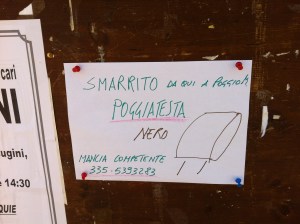 cari
NI
ugini,
e 14:30
QUIE
SMARRITO DA QUI A POGGIO
POGGIATESTA
NERO
MANCIA COMPETENTE
335-5393283